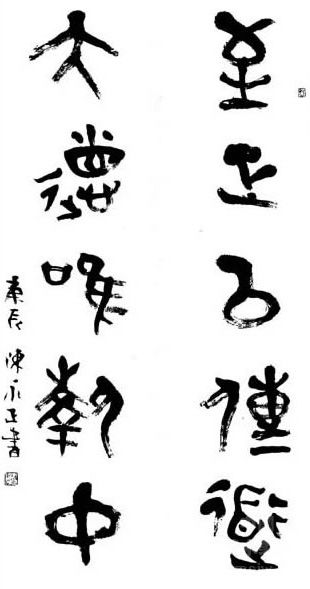 至正可傳道
大德唯執中
庚辰 陳永正書